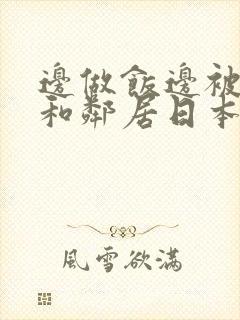 邊做飯邊被
和鄰居日本
風雪欲滿